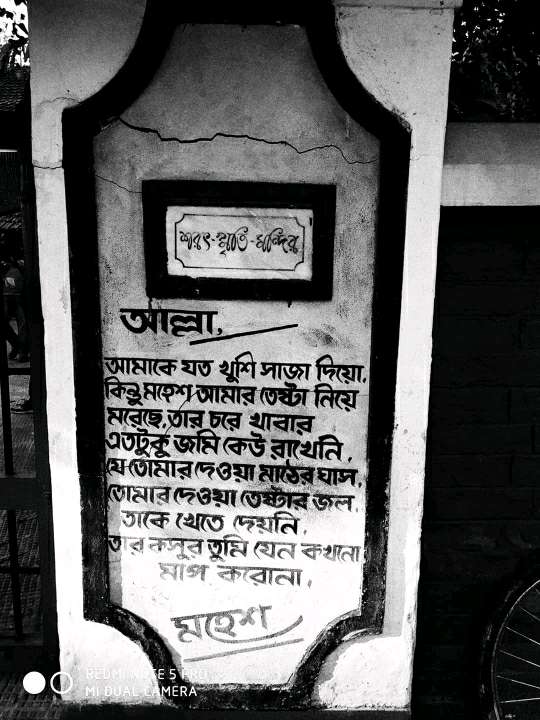 শরৎ-স্মৃতি-মন্দির
আল্লা,
আমাকে যত খুশি সাজা দিয়ো,
কিন্তু মহেশ আমার তেষ্টা নিয়ে
মরেছে, তার চরে খাবার
এতটুকু জমি কেউ রাখেনি,
যে তোমার দেওয়া মাঠের ঘাস,
তোমার দেওয়া তেষ্টার জল,
তাকে খেতে দেয়নি,
তার কসুর তুমি যেন কখনো
মাপ করোনা,
মহেশ
REDMI NOTE 5 PRO
MI DUAL CAMERA